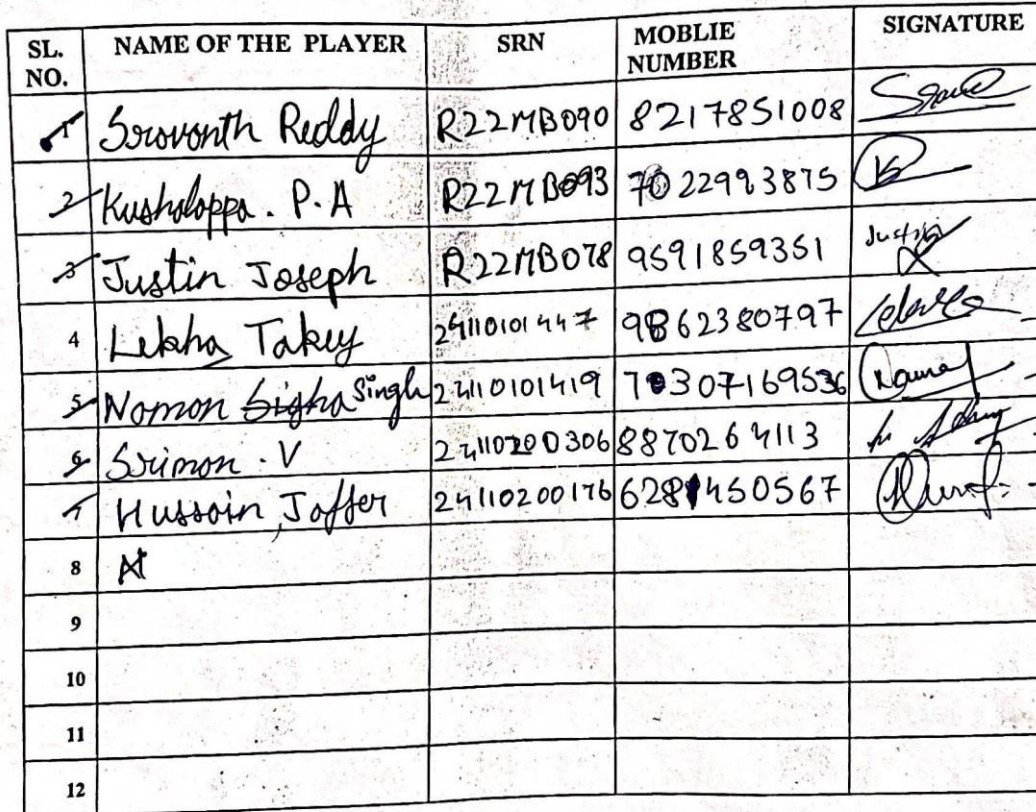 SL. NO. NAME OF THE PLAYER SRN MOBLIE NUMBER SIGNATURE
1 Srovonth Reddy R22MB090 8217851008
2 Kusholoppo. P.A R22MB093 7022993875
3 Justin Joseph R22MB078 9591859351 Justin
4 Lekha Takey 24110101447 9862380797
5 Nomon Sigha Singh 24110101419 70307169536
6 Srimon. V 24110200306 8870264113
7 Hussoin Joffer 24110200176 6281450567
8
9
10
11
12